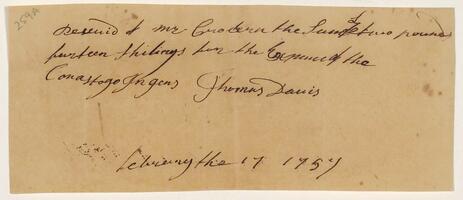 259A
Reseuid of mr Crodern the Sum of two pounds
furteen shilings for the Expence of the
Conastogo Ingens Thomas Davis
febuary the 17 1757